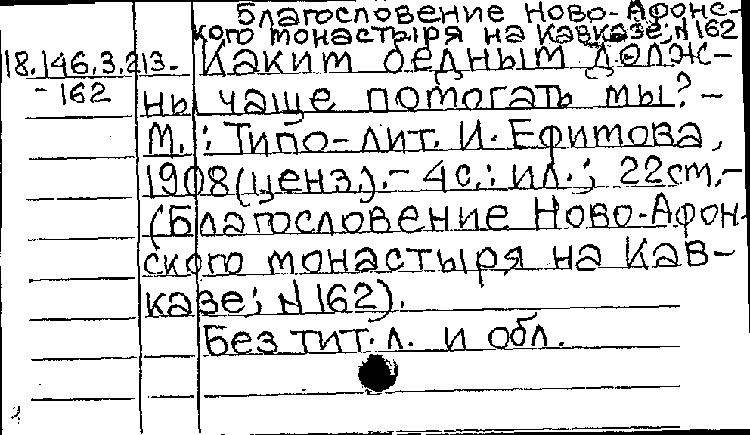 Благословение Ново-Афонс-
кого монастыря на Кавказе; N 162
18.146.3.213- Каким бедным долж-
-162 ны чаще помогать мы? -
М.: Типо-лит. И. Ефимова,
1908 (ценз.). - 4 с.: ил.; 22 см. -
(Благословение Ново-Афон-
ского монастыря на Кав-
казе; N 162).
Без тит. л. и обл.